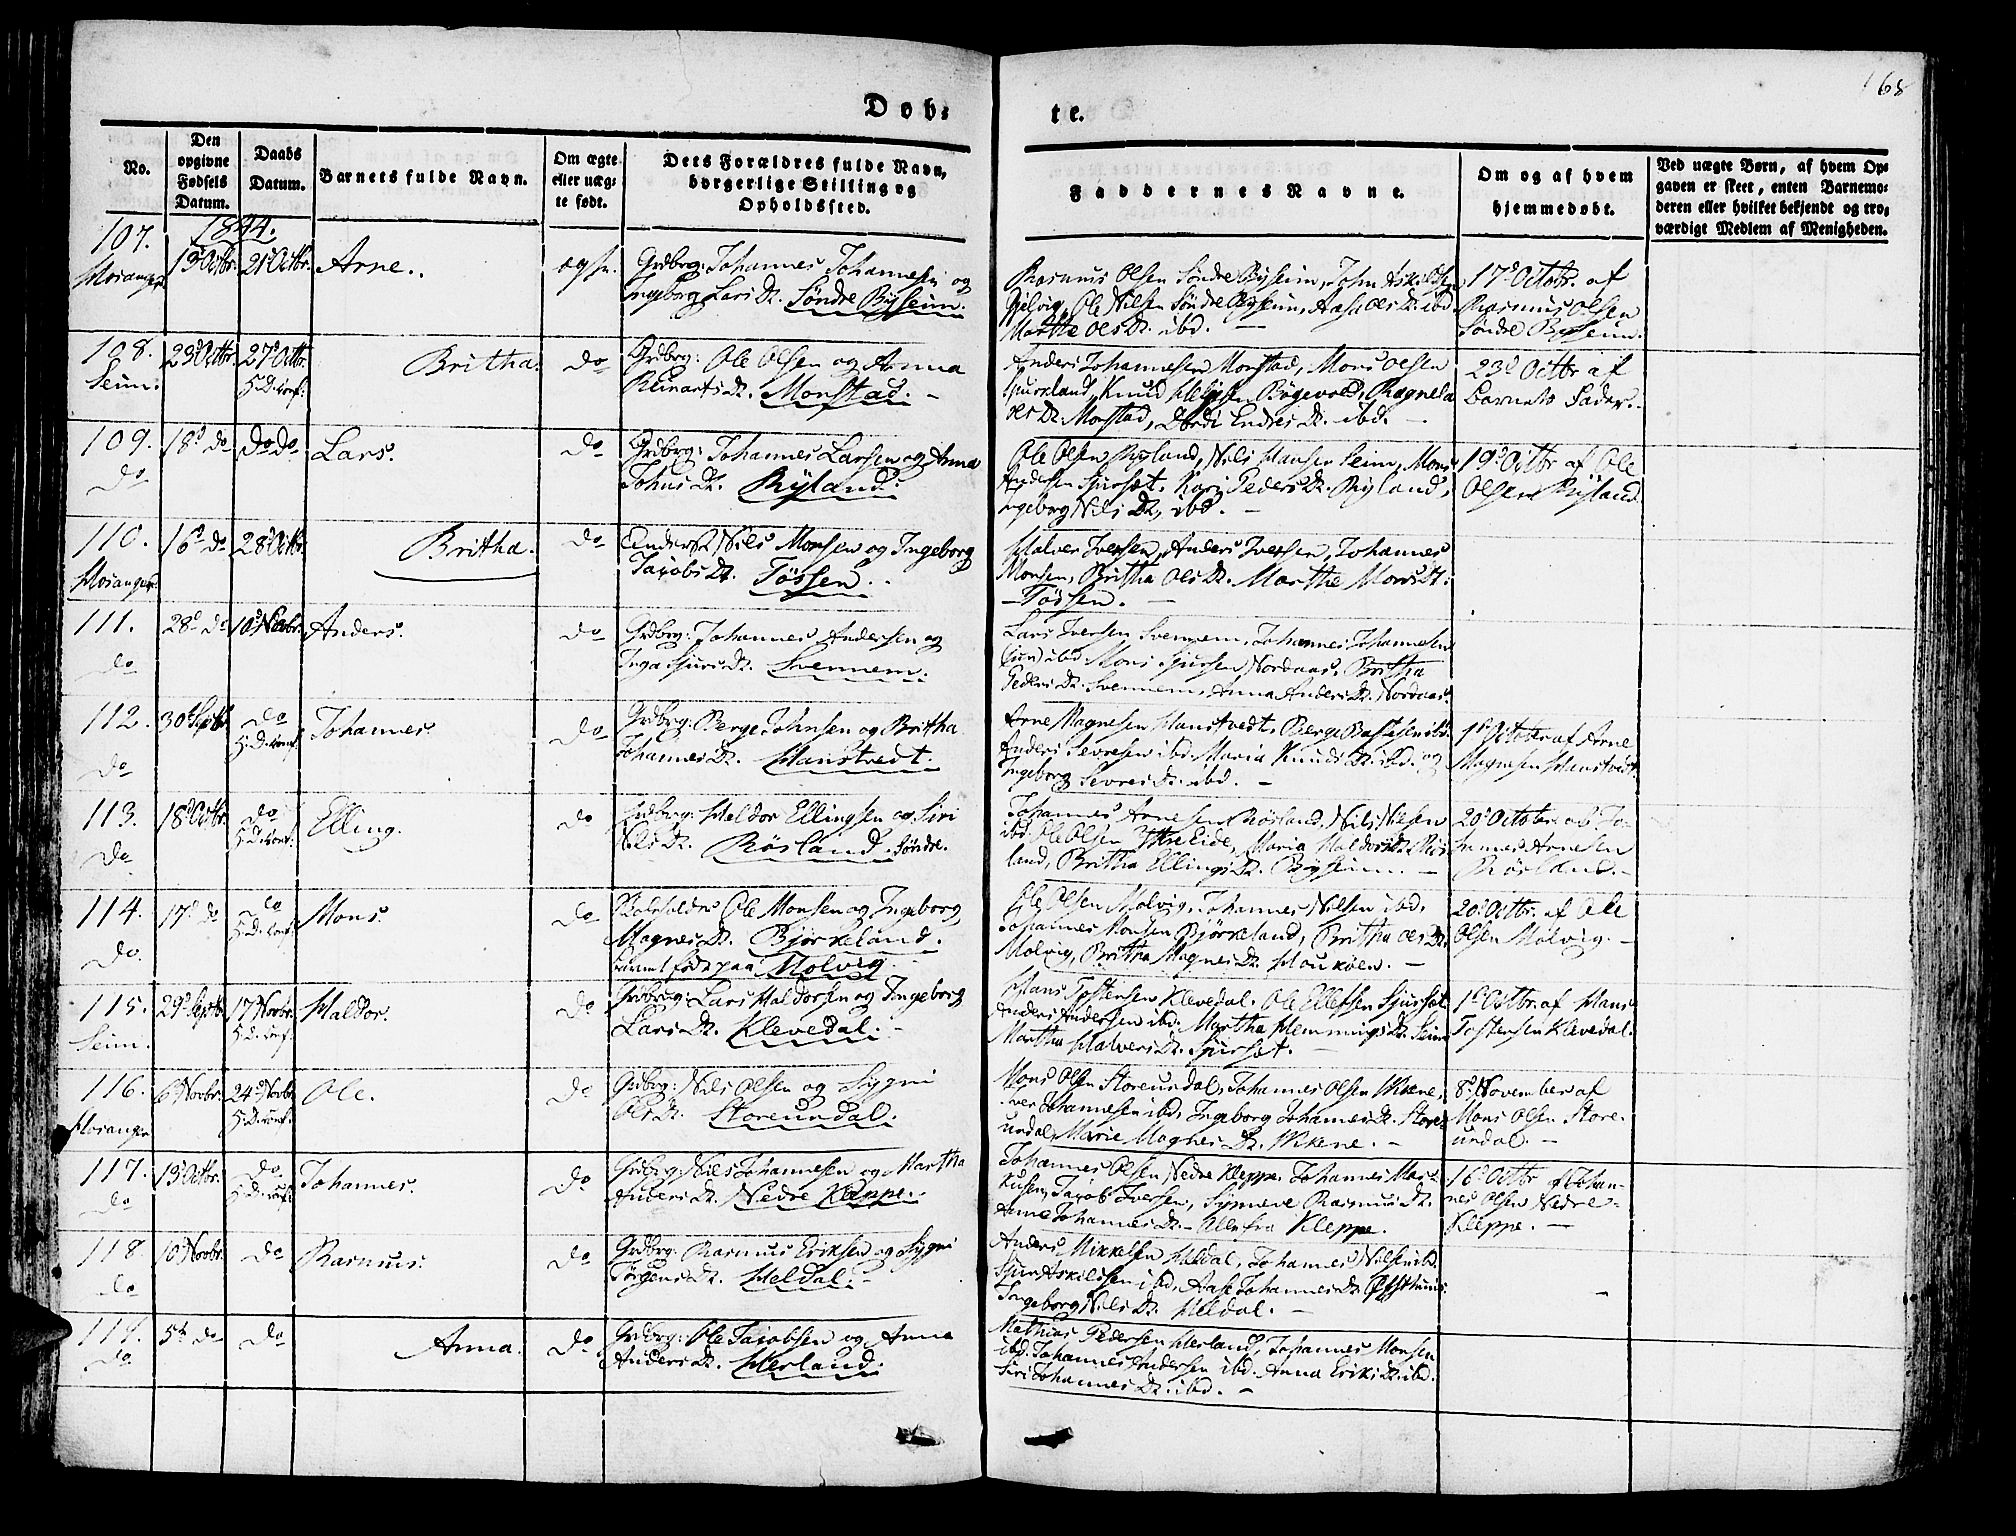 168
Døb=
te.
No.
Den
opgivne
Fødsels
Datum.
Daabs
Datum.
Barnets fulde Navn.
Om ægte
eller uæg-
te født.
Dets Forældres fulde Navn,
borgerlige Stilling og
Opholdssted.
Faddernes Navne.
Om og af hvem
hjemmedøbt.
Ved uægte Børn, af hvem Op-
gaven er skeet, enten Barnemo-
deren eller hvilket bekjendt og tro-
værdigt Medlem af Menigheden.
1844.
107.
Hosanger
13 Octbr. 21 Octbr. Arne. ægte.
Grdbrg: Johannes Johannesen og
Ingeborg Lars Dr. Søndre Byseim.
Rasmus Olsen Søndre Byseim, John Askildsen
Ole Nilsen Søndre Byseim, Aase Oles Dr. ibd.
Marthe Oles Dr. ibd. —
17de Octbr. af
Rasmus Olsen
Søndre Byseim.
108.
Seim.
23de Octbr. 27de Octbr.
H. D. conf:
Britha. do
Grdbrg: Ole Olsen og Anna
Reinerts Dr. Monstad. —
Anders Johannesen Monstad, Mons Olsen
Spurkland, Knud Bøgevold, Ragnela
Oles Dr. Monstad, Dordi Endres Dr. ibd. —
23de Octbr af
Barnets Fader.
109.
do
18de do do do Lars. do
Grdbrg: Johannes Larsen og Anna
Johns Dr. Ryland.
Ole Olsen Ryland, Nils Hansen Seim, Mons
Andersen Sjurset, Kari Peders Dr. Ryland,
Ingeborg Nils Dr. ibd. —
19de Octbr af Ole
Olsen Ryland.
110.
Hosanger
16de do 28de Octbr. Britha. do
Nils Monsen og Ingeborg
Jacobs Dr. Tøssen.
Halver Iversen, Anders Iversen, Johannes
Monsen, Britha Oles Dr. Marthe Mons Dr.
— Tøssen. —
111.
do
28de do 10de Novbr. Anders. do
Grdbrg: Johannes Andersen og
Inga Sjurs Dr. Svennem.
Lars Iversen Svennem, Johannes Johannesen
(jun) ibd. Mons Sjursen Nordaas, Britha
Peders Dr. Svennem, Anna Anders Dr. Nordaas.
112.
do
30 Septbr. do
H. D. conf:
Johannes. do
Grdbrg: Berge Johnsen og Britha
Johannes Dr. Hanstvedt.
Arne Magnesen Hanstvedt, Berge ibd.
Anders Sevresen ibd. Maria Knuds Dr. ibd. og
Ingeborg Sevres Dr. ibd. —
1de October af Arne
Magnesen Hanstvedt.
113.
do
18de Octbr. do
H. D. conf:
Elling. do
Grdbrg: Haldor Ellingsen og Siri
Nils Dr. Røsland Søndre.
Johannes Arnesen Røsland, Nils Nilsen
ibd. Ole Olsen Eide, Maria Haldors Dr. Røs-
land, Britha Ellings Dr. Byseim. —
20de Octobr. af Jo-
hannes Arnesen
Røsland. —
114.
do
17de do do
H. D. conf:
Mons do
Ole Monsen og Ingeborg
Magnes Dr. Bjørkeland.
Barnet født paa Molvig
Ole Olsen Molvig, Johannes Nilsen ibd.
Johannes Monsen Bjørkeland, Britha Oles Dr.
Molvig, Britha Magnes Dr. Houkøen. —
20de Octbr. af Ole
Olsen Molvig. —
115.
Seim.
29de Septbr. 17 Novbr.
H. D. conf.
Haldor. do
Grdbrg: Lars Haldorsen og Ingeborg
Lars Dr. Klevedal. —
Hans Tostensen Klevedal, Ole Ellefsen Sjurset
Anders Andersen ibd. Martha Hemmings Dr. Seim
Martha Halvers Dr. Sjurset. —
1de Octbr. af Hans
Tostensen Klevedal.
116.
Hosanger
6 Novbr. 24de Novbr.
H. D. conf:
Ole. do
Grdbrg: Nils Olsen og Sygni
Ols Dr. Storeurdal.
Mons Olsen Storeurdal, Johannes Olsen Wikene,
Iver Johannesen ibd. Ingeborg Johannes Dr. Store-
urdal, Marie Magnes Dr. Wikene. —
8de November af
Mons Olsen Store-
urdal. —
117.
do
13 Octbr. do
H. D. conf:
Johannes. do
Grdbrg: Nils Johannesen og Martha
Anders Dr. Nedre Kleppe. —
Johannes Olsen Nedre Kleppe. Johannes Mar-
kusen, Jacob Iversen, Synneve Rasmus Dr.
Anne Johannes Dr. – Alle fra Kleppe.
16de Octbr af Johan-
nes Olsen Nedre
Kleppe. —
118.
do
10 Novbr. do Rasmus. do
Grdbrg: Rasmus Eriksen og Sygni
Jørgens Dr. Heldal. —
Anders Mikkelsen Heldal, Johannes Nilsen ibd.
Sjur Askildsen ibd, Aase Johannes Dr.
Ingeborg Nils Dr. Heldal. —
—
119.
do
5te do do Anna. do
Grdbrg: Ole Jacobsen og Anna
Anders Dr. Herland.
Mathias Pedersen Herland, Johannes Monsen
ibd. Johannes Andersen ibd. Anna Eriks Dr. ibd.
Siri Johannes Dr. ibd. —